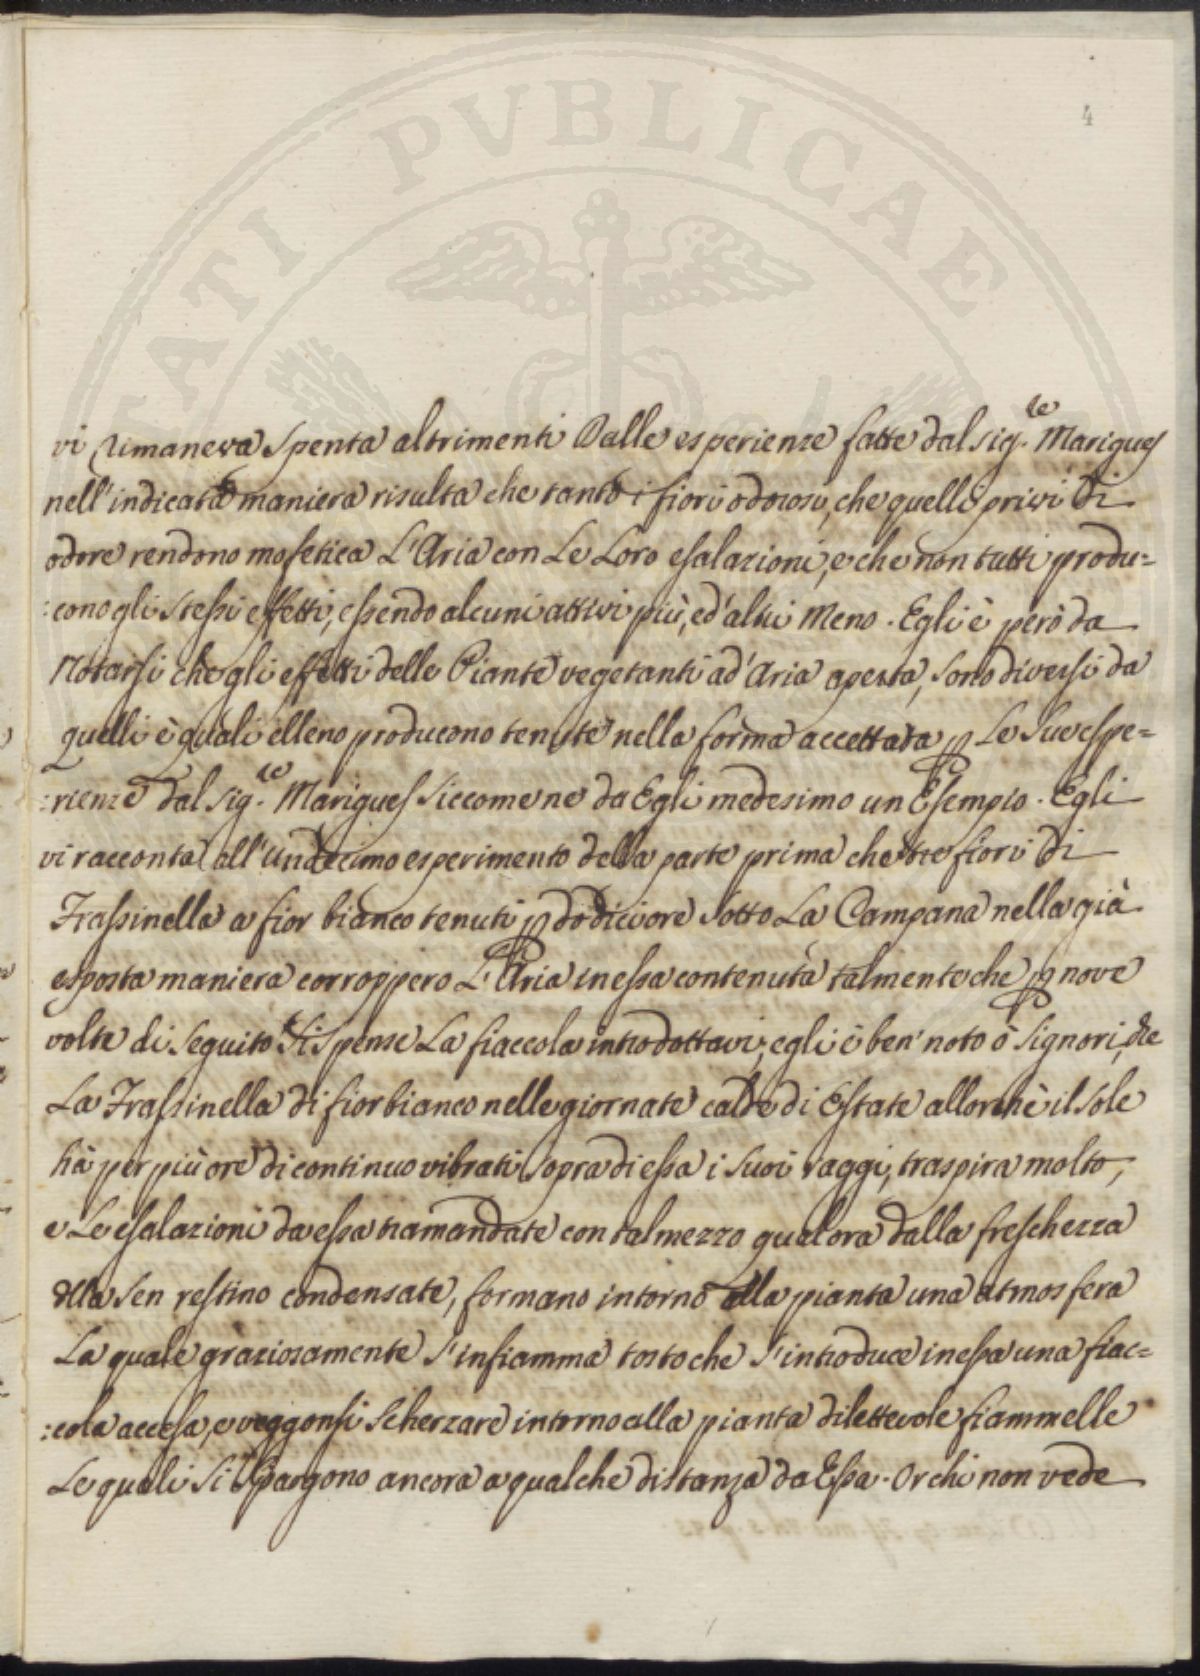 4
vi rimaneva spenta altrimenti Dalle esperienze fatte dal sig.le Marigues
nell'indicata maniera risulta che tanto i fiori odorosi, che quelli privi di
odore rendono mofetica L'Aria con Le Loro esalazioni, e che non tutti produ=
:cono gli stessi effetti, essendo alcuni attivi più, ed' altri Meno. Egli è però da
Notarsi che gli effetti delle Piante vegetanti ad' Aria aperta, sono diversi da
quelli è quali elleno producono tenute nella forma accettata p Le Sue espe=
:rienze dal sig.le Marigues siccome ne da Egli medesimo un Esempio. Egli
vi racconta all'undecimo esperimento della parte prima che tre fiori di
Frassinella a fior bianco tenuti p dodici ore sotto La Campana nella già
esposta maniera corroppero L'Aria in essa contenuta talmente che p nove
volte di seguito si spense La fiaccola introdottavi; egli è ben' noto ò Signori, che
La Frassinella di fior bianco nelle giornate calde di Estate allorchè il Sole
hà per più ore di continuo vibrati sopra di essa i suoi raggi, traspira molto,
e Le esalazioni da essa tramandate con tal mezzo qualora dalla freschezza
della sen restino condensate, formano intorno alla pianta una atmosfera
La quale graziosamente s'infiamma tosto che s'introduce in essa una fiac=
:cola accesa, e veggonsi scherzare intorno alla pianta dilettevole fiammelle
Le quali si spargono ancora a qualche distanza da Essa. Or chi non vede
PVBLICAE